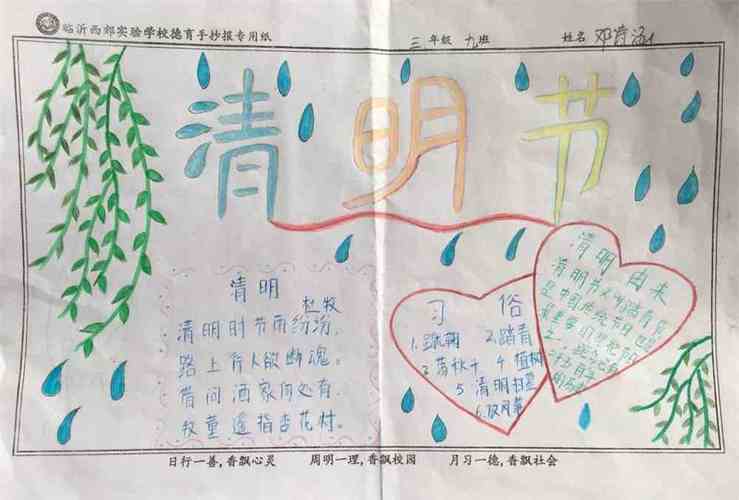 临沂西郊实验学校德育手抄报专用纸 三年级 九班 姓名
清明节
清明
杜牧
清明时节雨纷汾,
路上育人欲断魂。
借问酒家何处有,
牧童遥指杏花村。
习俗
1. 2.踏青
3荡秋千 4植树
5清明扫墓
6.放风筝
清明由来
清明节又叫踏青
是中国传统节日也是
最重要
日行一善,香飘心灵 周明一理,香飘校园 月习一德,香飘社会